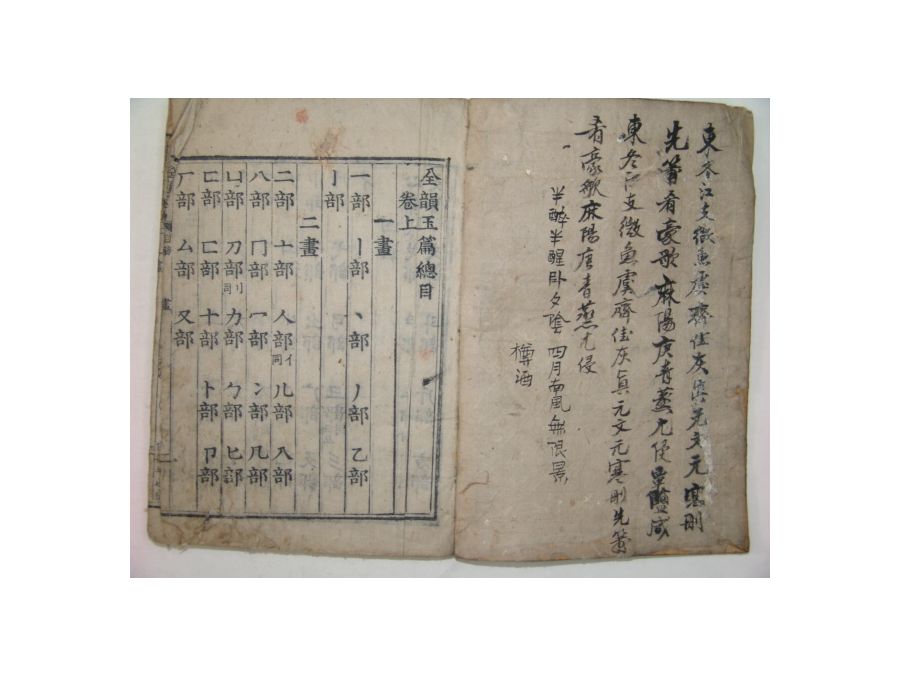 東冬江支微魚虞齊佳灰眞元文元寒刪
先蕭肴豪歌麻陽庚靑蒸尤侵覃鹽咸
東冬江支微魚虞齊佳灰眞元文元寒刪先蕭
肴豪歌麻陽唐青蒸尤侵
半醉半醒臥夕陰 四月南風無限景
樽酒
全韻玉篇總目
卷上
一畫
一部 丨部 丶部 丿部 乙部
亅部
二畫
二部 亠部 人部同亻 儿部 入部
八部 冂部 冖部 冫部 几部
凵部 刀部同刂 力部 勹部 匕部
匚部 匸部 十部 卜部 卩部
厂部 厶部 又部